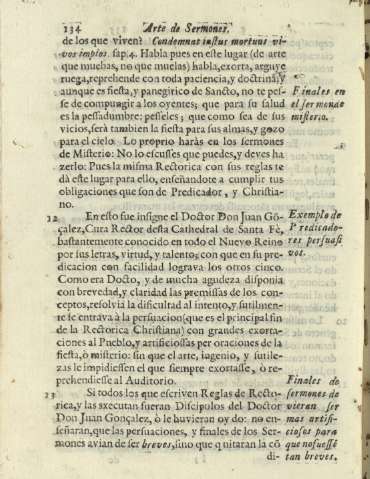 134 Arte de Sermones,
de los que viven? Condemnat iustus mortuus vi-
vos impios. sap. 4. Habla pues en este lugar (de arte
que muebas, no que muelas) habla, exorta, arguye
ruega, reprehende con toda paciencia, y doctrina; y
aunque es fiesta, y panegirico de Sancto, no te pes-
se de compungir a los oyentes; que para su salud
es la pessadumbre: pesseles; que como sea de sus
vicios, serà tambien la fiesta para sus almas, y gozo
para el cielo. Lo proprio haràs en los sermones
de Misterio: No lo escusses que puedes, y deves ha
zerlo: Pues la misma Rectorica con sus reglas te
dà este lugar para ello, enseñandote a cumplir tus
obligaciones que son de Predicador, y Christia-
no.
Finales en
el sermon de
misterio.
32 En esto fue insigne el Doctor Don Juan Gõ-
çalez, Cura Rector desta Cathedral de Santa Fè,
bastantemente conocido en todo el Nuevo Reino
por sus letras, virtud, y talento; con que en su pre-
dicacion con facilidad lograva los otros cinco.
Como era Docto, y de mucha agudeza disponia
con brevedad, y claridad las premissas de los con-
ceptos, resolvia la dificultad al intento, y sutilmen-
te se entrava à la persuacion (que es el principal fin
de la Rectorica Christiana) con grandes exorta-
ciones al Pueblo, y artificiossas per oraciones de la
fiesta, ò misterio: sin que el arte, ingenio, y sutile-
zas le impidiessen el que siempre exortasse, ò re-
prehendiesse al Auditorio.
Exemplo de
Predicado-
res persuasi
vos.
33 Si todos los que escriven Reglas de Recto-
rica, y las sxecutan fueran Discipulos del Doctor
Don Juan Gonçalez, ò le huvieran oydo: no en-
señaran, que las persuaciones, y finales de los Ser-
mones avian de ser breves, sino que quitaran la cõ
di-
Finales de
sermones de
vieran ser
mas artifi-
ciosos para
que no fuessẽ
tan breves.